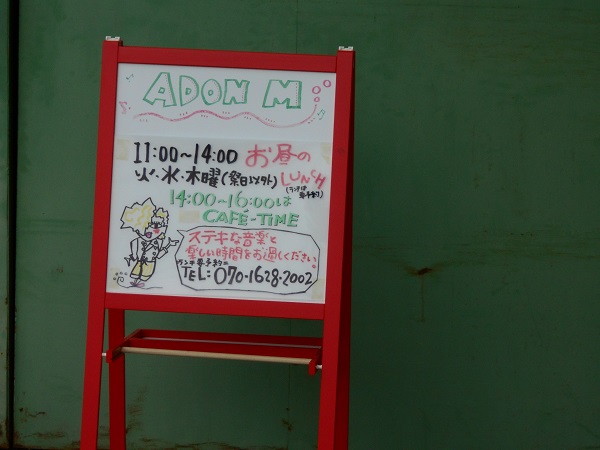 ADON M
11:00~14:00 お昼の
火・水・木曜(祭日以外) LUNCH
(ランチは要予約)
14:00~16:00は
CAFE-TIME
ステキな音楽と
楽しい時間をお過しください。
ランチ要予約
TEL: 070-1628-2002